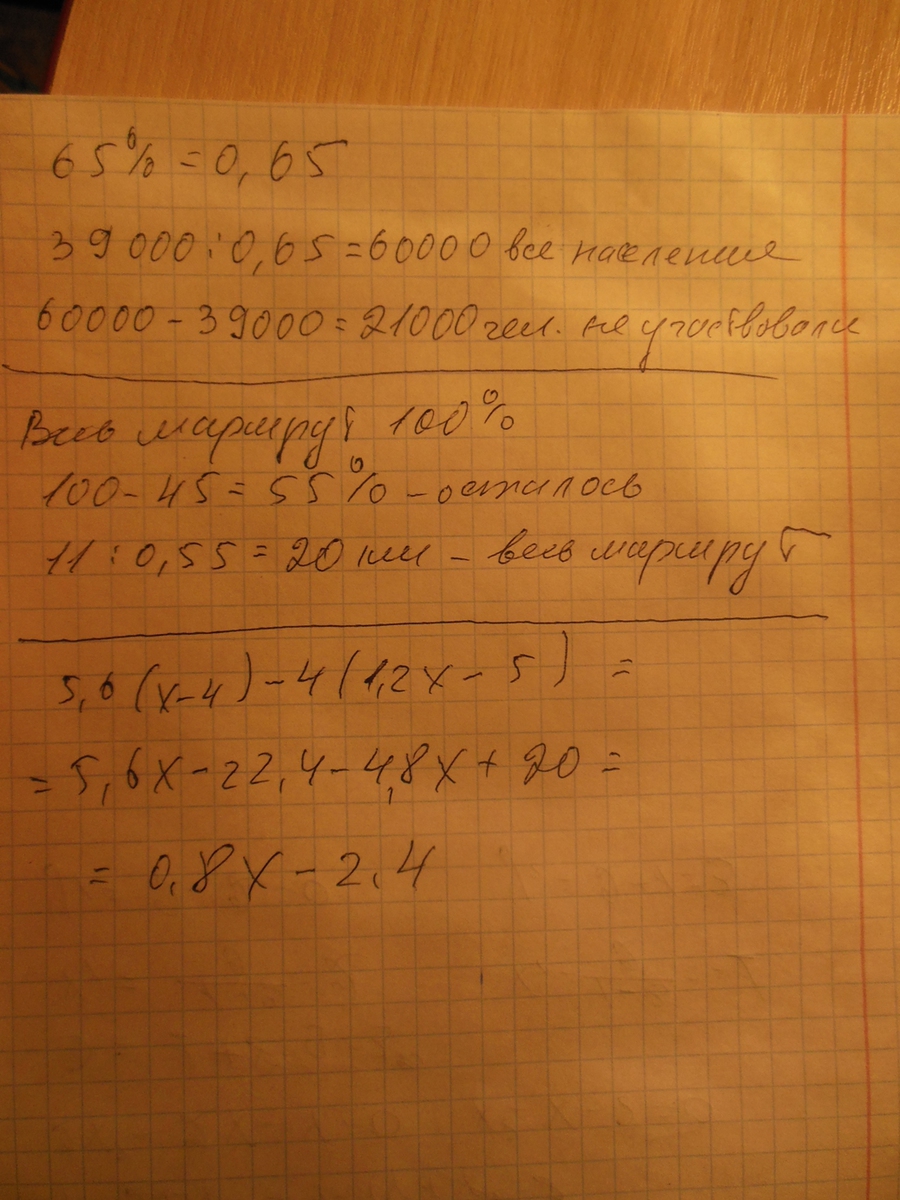 65% = 0,65
39000 : 0,65 = 60000 все население
60000 - 39000 = 21000 чел. не участвовали
Весь маршрут 100%
100 - 45 = 55% - осталось
11 : 0,55 = 20 км - весь маршрут
5,6(x-4) - 4(1,2x - 5) =
= 5,6x - 22,4 - 4,8x + 20 =
= 0,8x - 2,4